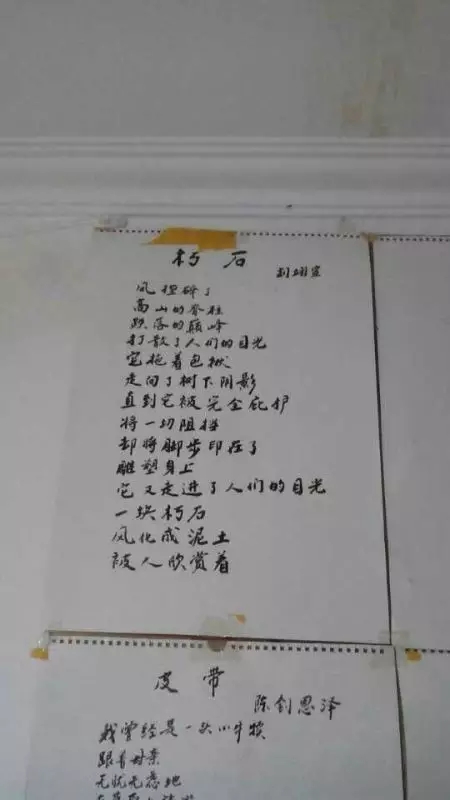 朽石
刘翊宣
风捏碎了
高山的脊柱
跌落的巅峰
打散了人们的目光
它拖着包袱
走向了树下阴影
直到它被完全庇护
将一切阻挡
却将脚步印在了
雕塑身上
它又走进了人们的目光
一块朽石
风化成泥土
被人欣赏着
皮带
陈创思泽
我曾经是一头小牛犊
跟着母亲
无忧无虑地